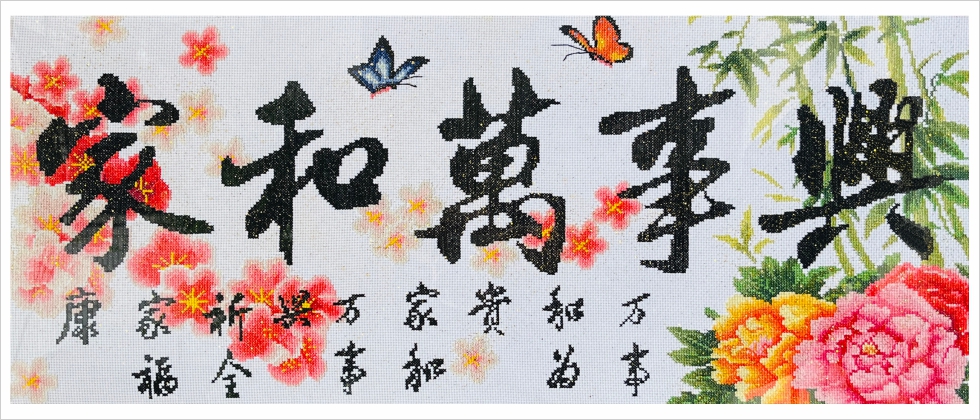 家和萬事興
万事
和为
貴
家和
万事
興
祈全
家福
康